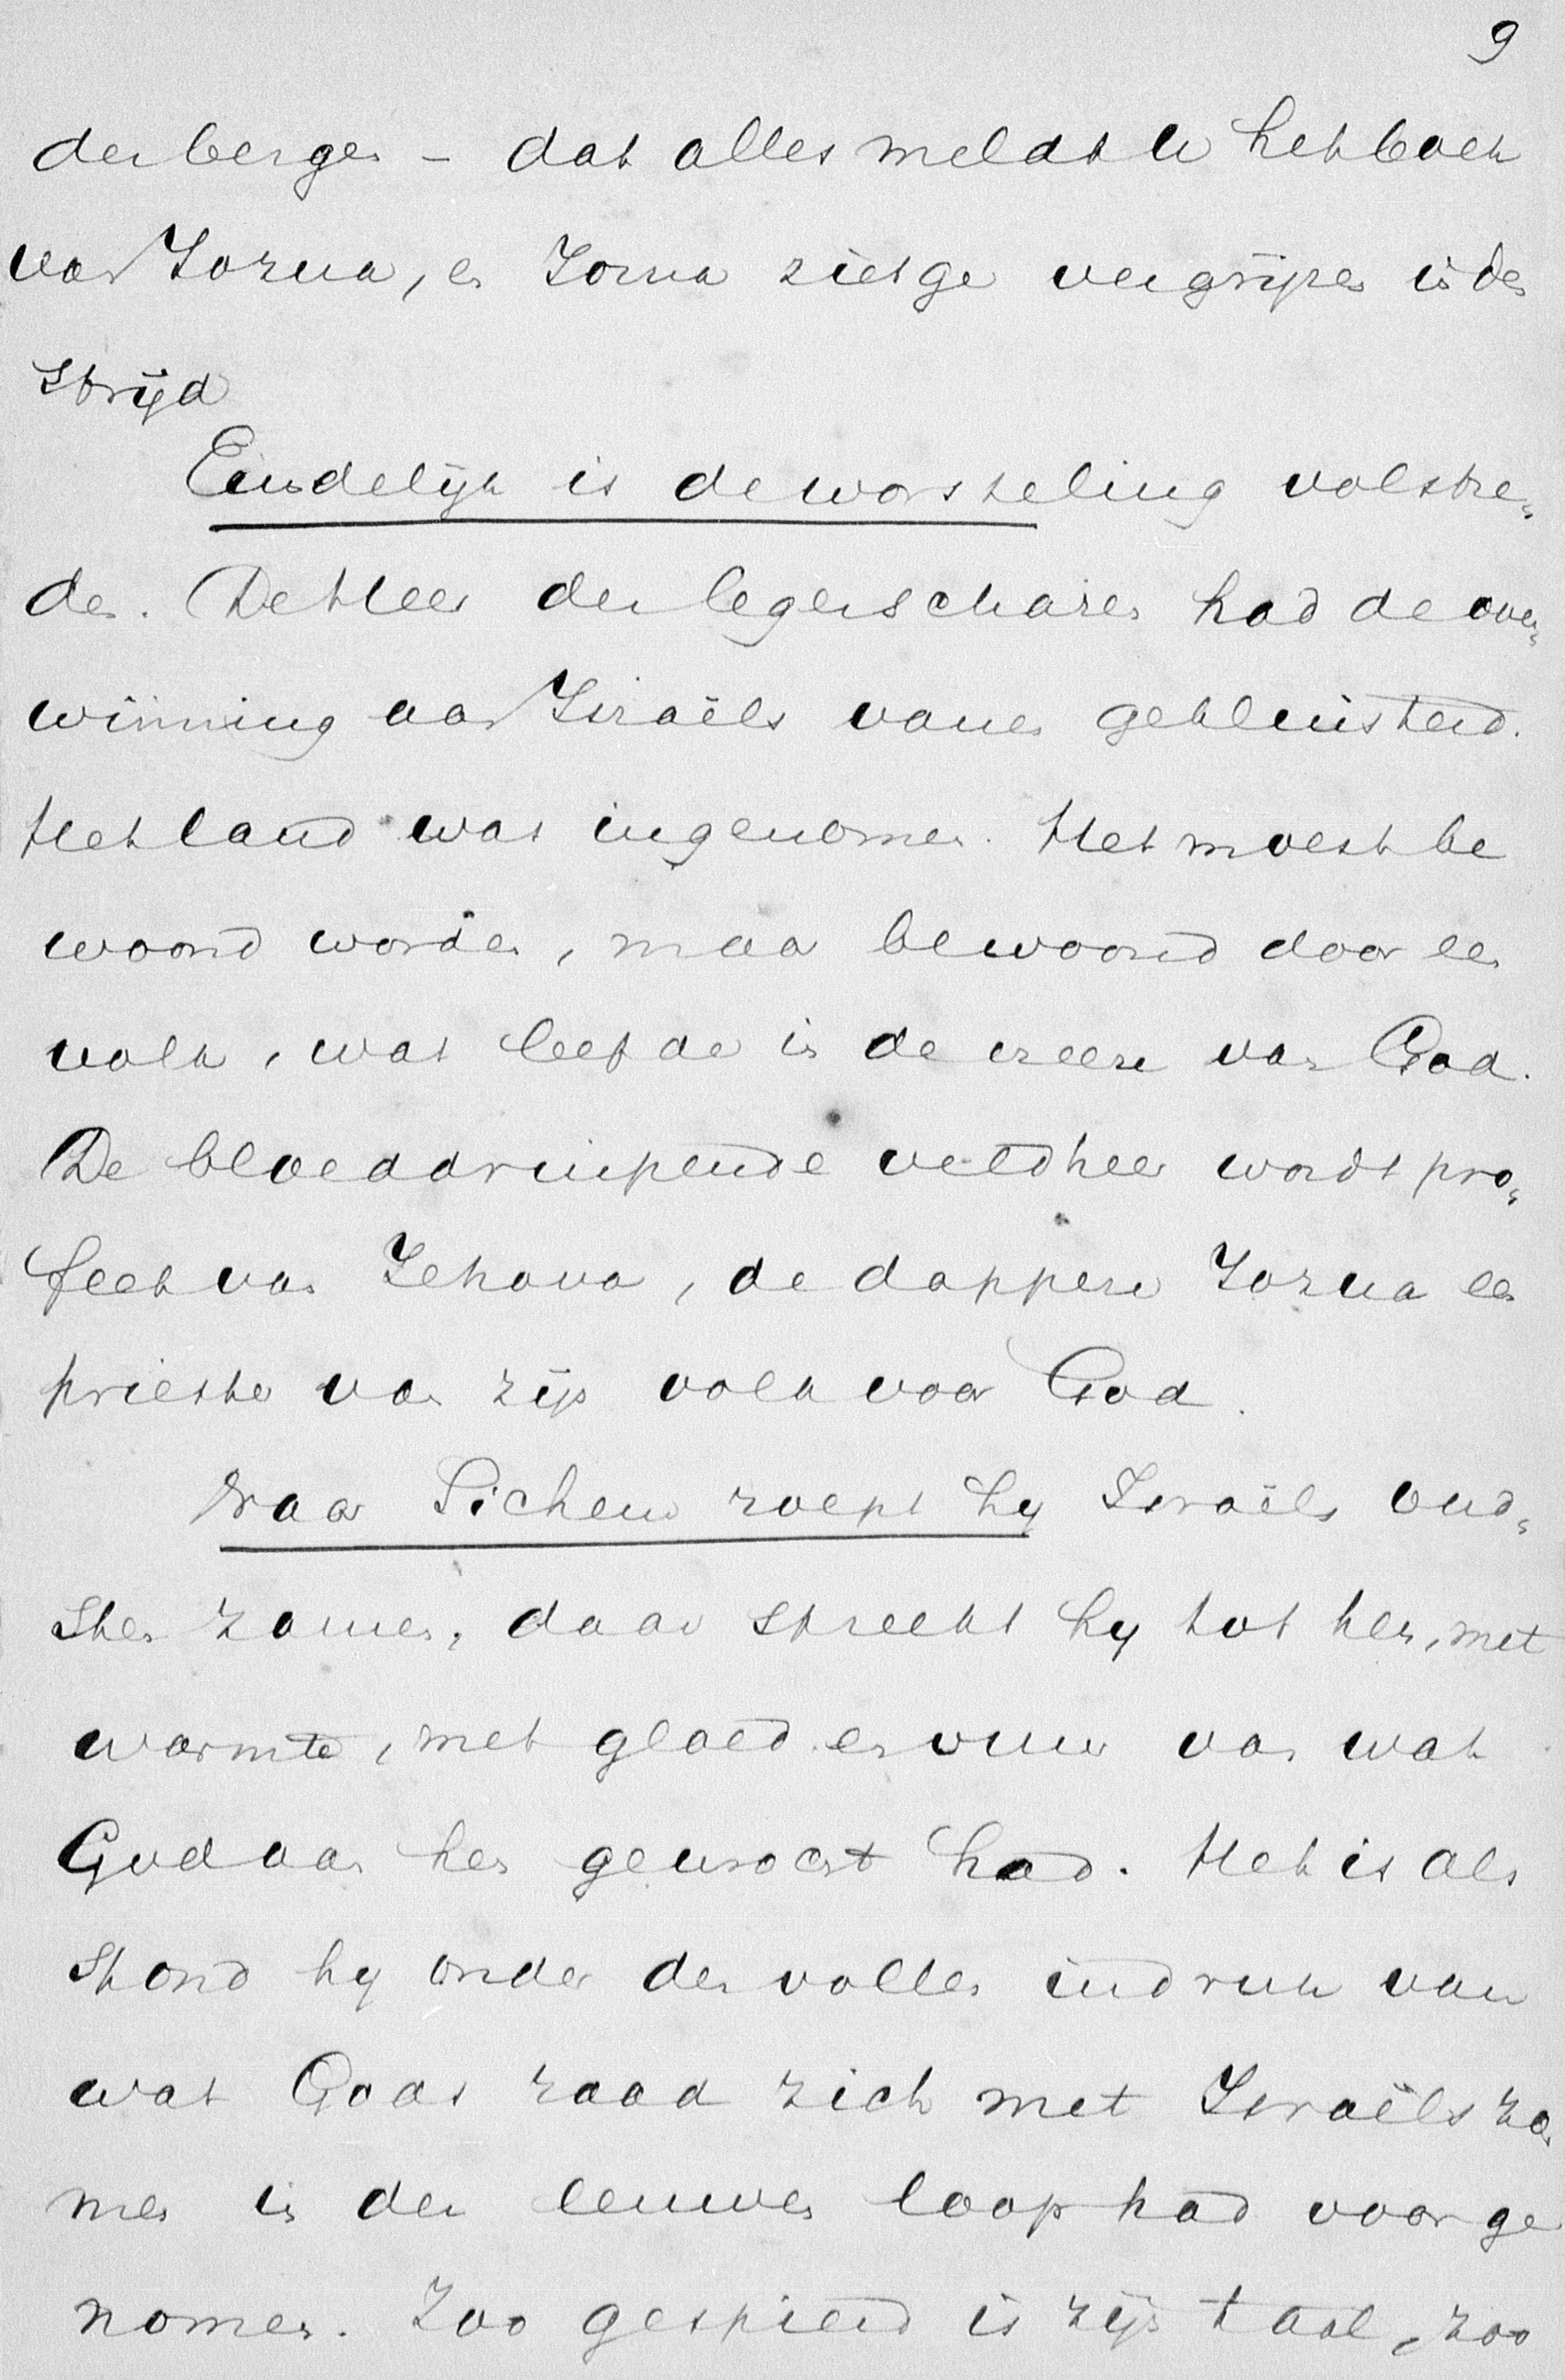 9
der bergen – dat alles meldt U het boek
van Jozua, en Jozua ziet ge vergrijzen in den
strijd
Eindelijk is de worsteling volstre-
den. De Heer der legerscharen had de over-
winning aan Israëls vanen gekluisterd.
Het land was ingenomen. Het moest be
woond worden, maar bewoond door een
volk, wat leefde in de vreeze van God.
De bloeddruipende veldheer wordt pro-
feet van Jehova, de dappere Jozua een
priester van zijn volk voor God.
Naar Sichem roept hy Israëls oud-
sten zamen, daar spreekt hy tot hen, met
warmte, met gloed en vuur van wat
God aan hen gewrocht had. Het is als
stond hy onder den vollen indruk van
wat Gods raad zich met Israëls za-
men in der eeuwen loop had voor ge
nomen. Zoo gespierd is zijn taal, zoo